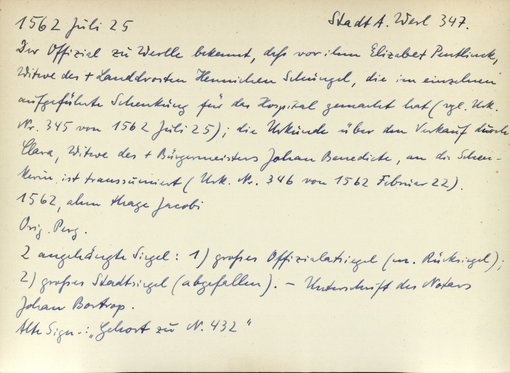 1562 Juli 25 Stadt A. Werl 347.
Der Offizial zu Werlle bekennt, daß vor ihm Elizabet Pentlinck,
Witwe des + Landdrosten Hennichen Schüngel, die im einzelnen
aufgeführte Schenkung für das Hospital gemacht hat (vgl. Urk.
Nr. 345 von 1562 Juli 25); die Urkunde über den Verkauf durch
Clara, Witwe des + Bürgermeisters Johan Benedicte, an die Schen-
kerin ist transsumiert (Urk. Nr. 346 von 1562 Februar 22).
1562, ahm thage Jacobi
Orig. Perg.
2 angehängte Siegel: 1) großes Offizialatsiegel (m. Rücksiegel);
2) großes Stadtsiegel (abgefallen). – Unterschrift des Notars
Johan Bortrop.
Alte Sign.: „Gehort zu N. 432"